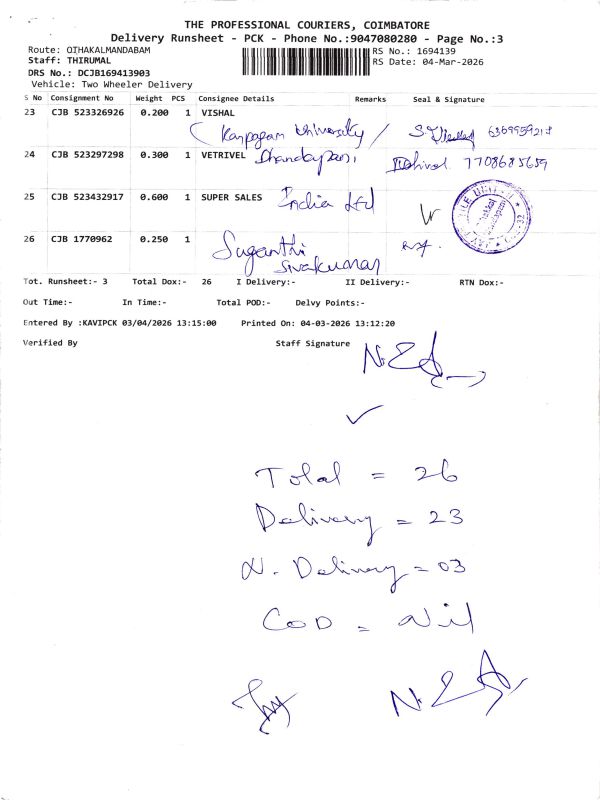 THE PROFESSIONAL COURIERS, COIMBATORE
Delivery Runsheet - PCK - Phone No.:9047080280 - Page No.:3
Route: OTHAKALMANDABAM
RS No.: 1694139
Staff: THIRUMAL
RS Date: 04-Mar-2026
DRS No.: DCJB169413903
Vehicle: Two Wheeler Delivery
S No Consignment No Weight PCS Consignee Details Remarks Seal & Signature
23 CJB 523326926 0.200 1 VISHAL
Karpagam University /
24 CJB 523297298 0.300 1 VETRIVEL Dhandapani 7708685659
25 CJB 523432917 0.600 1 SUPER SALES India Ltd
26 CJB 1770962 0.250 1 Suganthi
Sivakumar
Tot. Runsheet:- 3 Total Dox:- 26 I Delivery:- II Delivery:- RTN Dox:-
Out Time:- In Time:- Total POD:- Delvy Points:-
Entered By :KAVIPCK 03/04/2026 13:15:00 Printed On: 04-03-2026 13:12:20
Verified By Staff Signature
Total = 26
Delivery = 23
N. Delivery = 03
COD = Nil